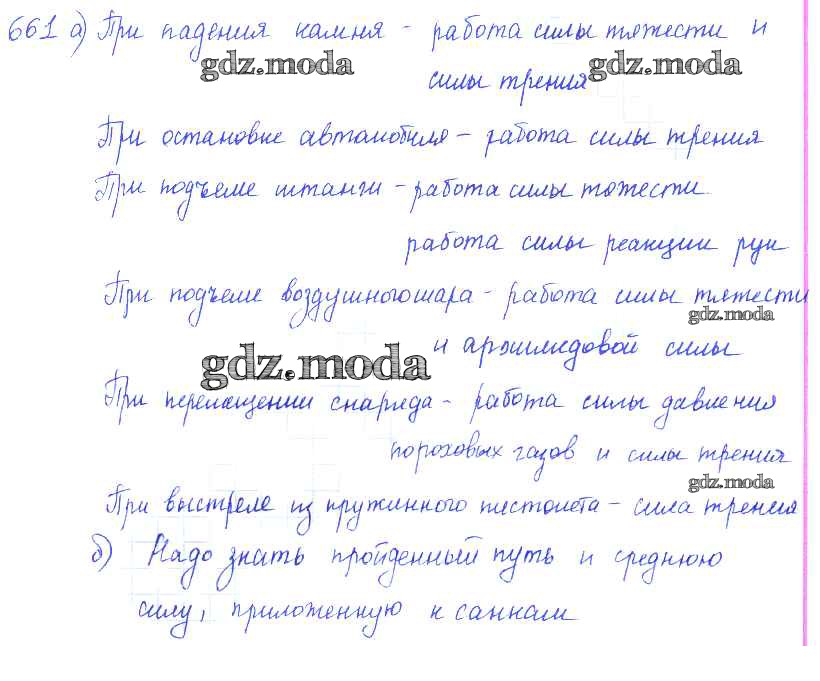 661 а) При падения камня - работа силы тяжести и
gdz.moda gdz.moda
силы трения
При остановке автомобиля - работа силы трения
При подъеме штанги - работа силы тяжести.
работа силы реакции рук
При подъеме воздушного шара - работа силы тяжести
gdz.moda
и архимедовой силы
gdz.moda
При перемещении снаряда - работа силы давления
пороховых газов и силы трения
gdz.moda
При выстреле из пружинного пистолета - сила трения
б) Надо знать пройденный путь и среднюю
силу, приложенную к санкам